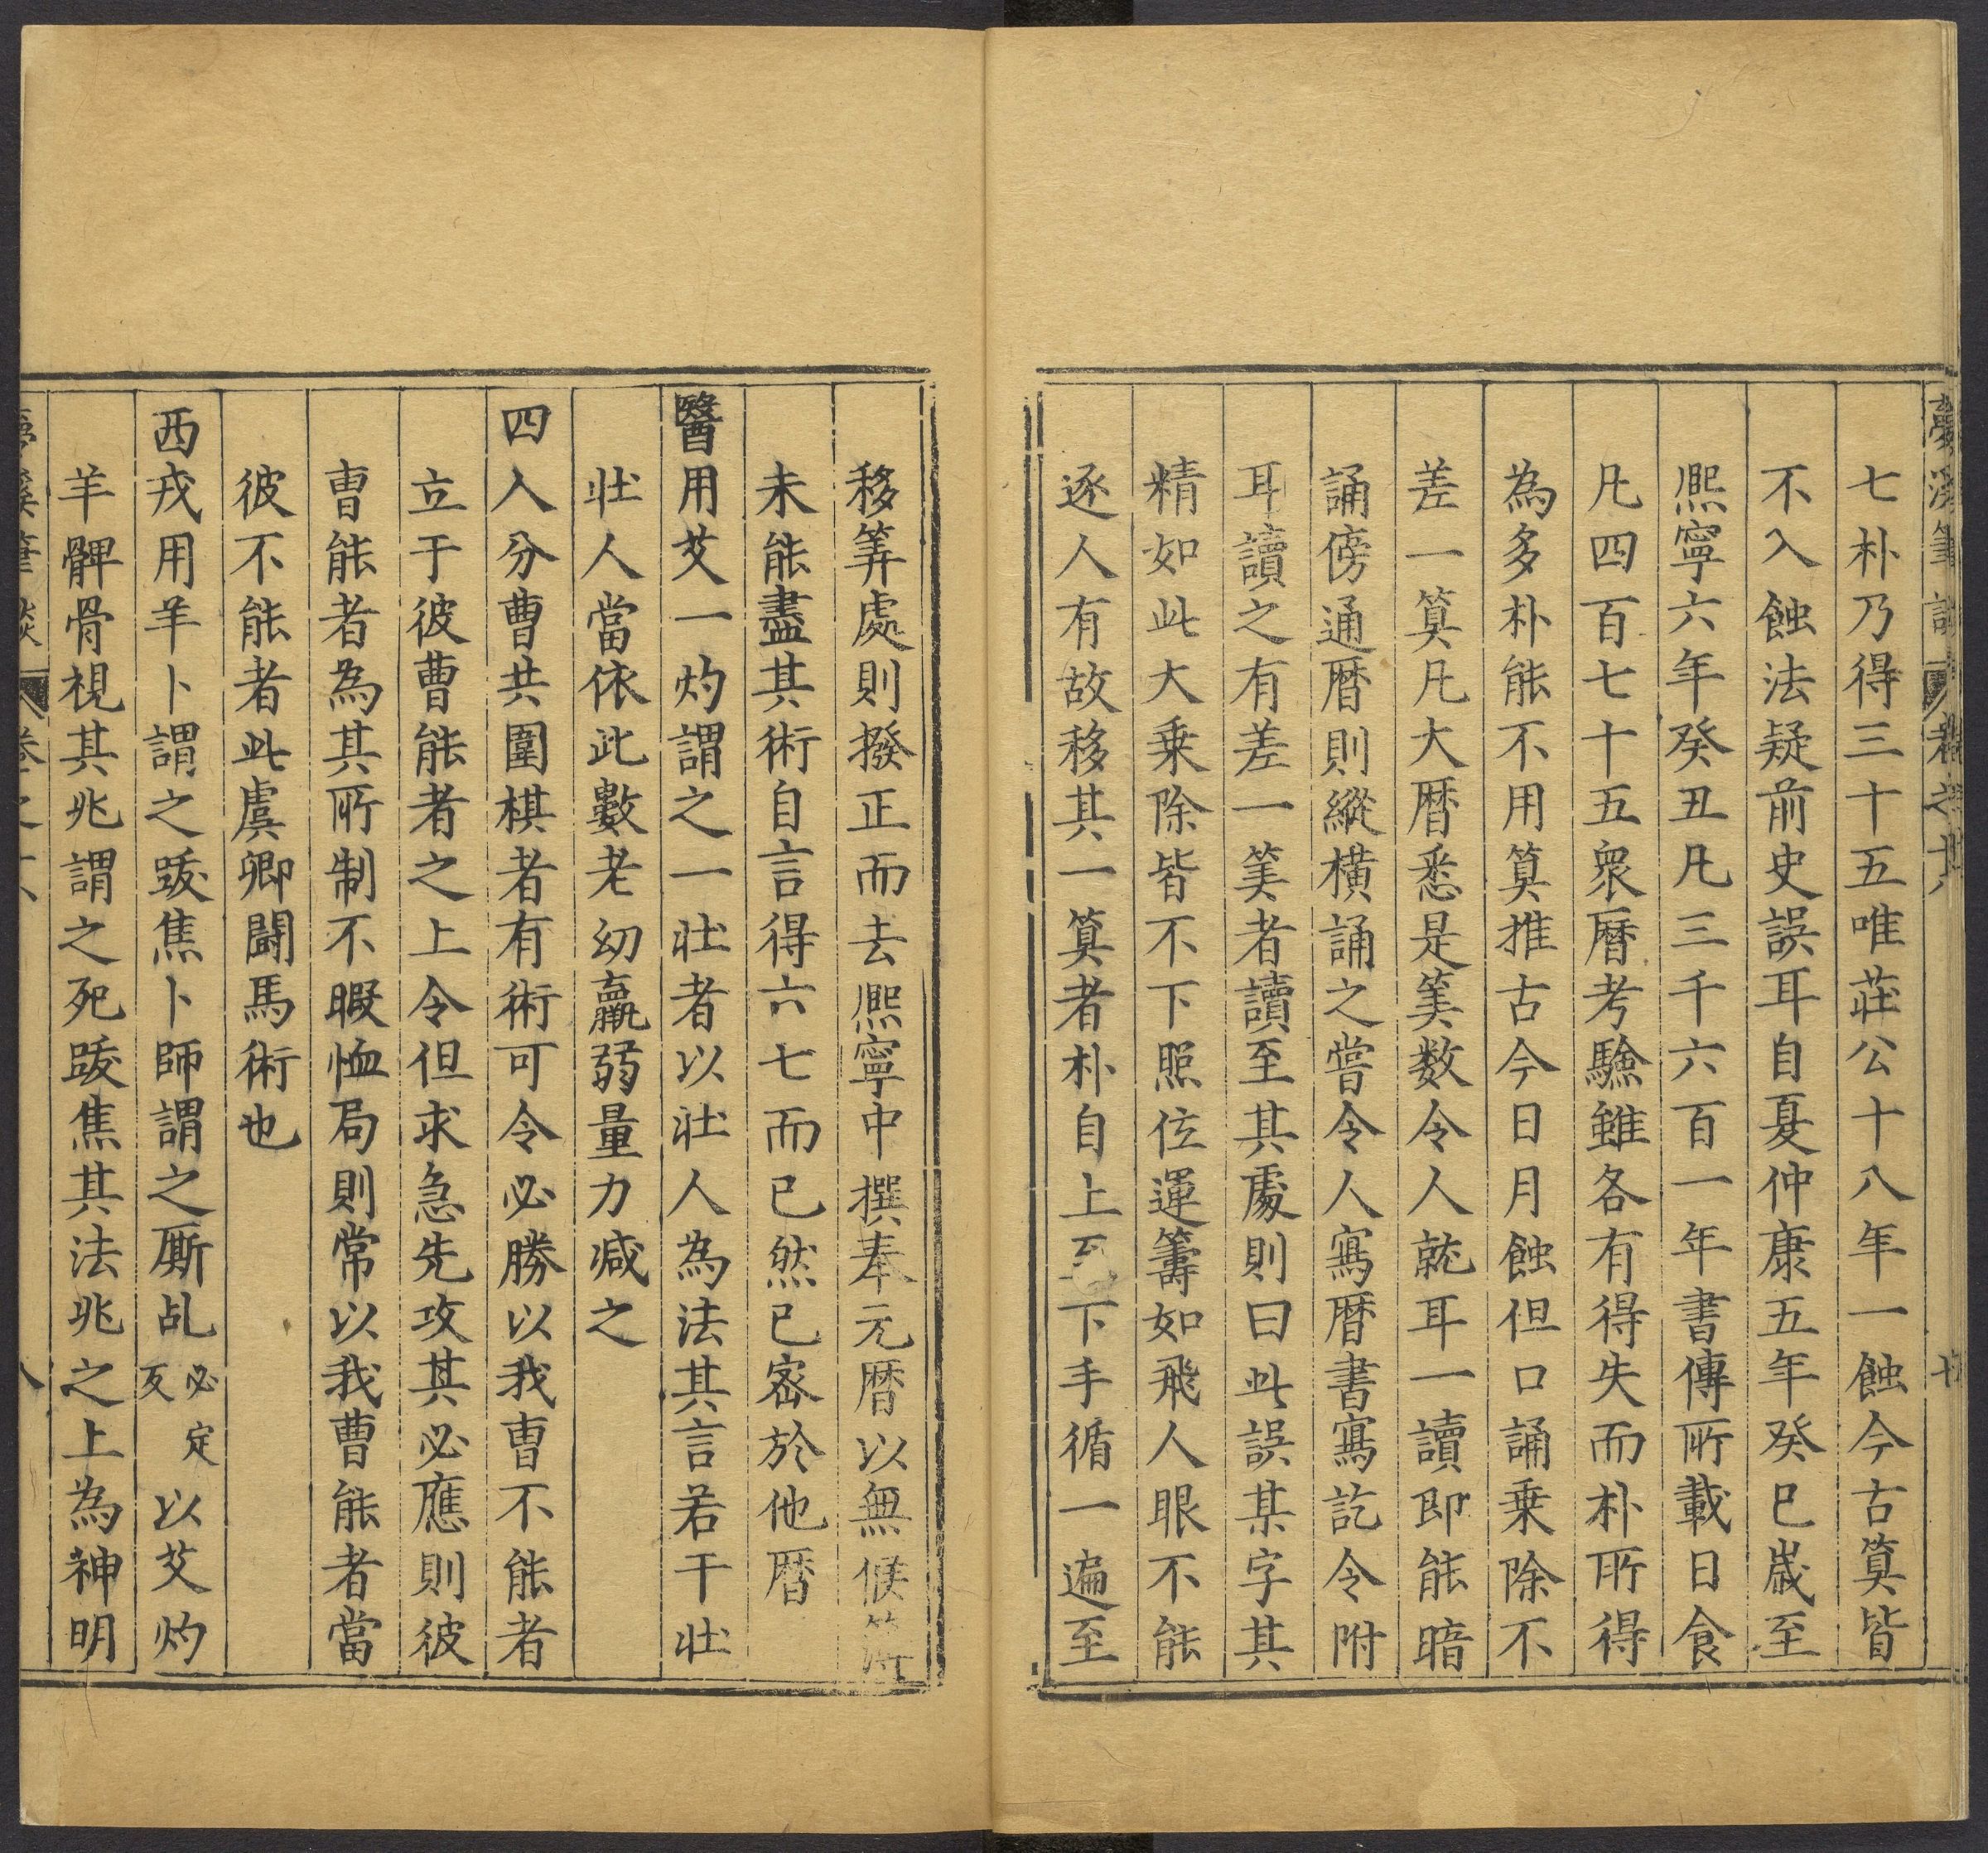 夢溪筆談 卷之十八
七朴乃得三十五唯莊公十八年一蝕今古算皆
不入蝕法疑前史誤耳自夏仲康五年癸巳歲至
熙寧六年癸丑凡三千六百一年書傳所載日食
凡四百七十五衆曆考驗雖各有得失而朴所得
為多朴能不用算推古今日月蝕但口誦乗除不
差一算凡大暦悉是筭数令人就耳一讀即能暗
誦傍通暦則縱橫誦之嘗令人寫暦書寫訖令附
耳讀之有差一筭者讀至其處則曰此誤某字其
精如此大乗除皆不下照位運籌如飛人眼不能
逐人有故移其一算者朴自上至下手循一遍至
移筭處則撥正而去熙寧中撰奉元暦以無候簿
未能盡其術自言得六七而已然已宻於他暦
醫用艾一灼謂之一壯者以壯人為法其言若干壯
壯人當依此數老幼羸弱量力減之
四人分曹共圍棋者有術可令必勝以我曺不能者
立于彼曹能者之上令但求急先攻其必應則彼
曺能者為其所制不暇恤局則常以我曹能者當
彼不能者此虞卿鬬馬術也
西戎用羊卜謂之跋焦卜師謂之厮乩必定反以艾灼
羊髀骨視其兆謂之死跋焦其法兆之上為神明
夢溪筆談 卷之十八